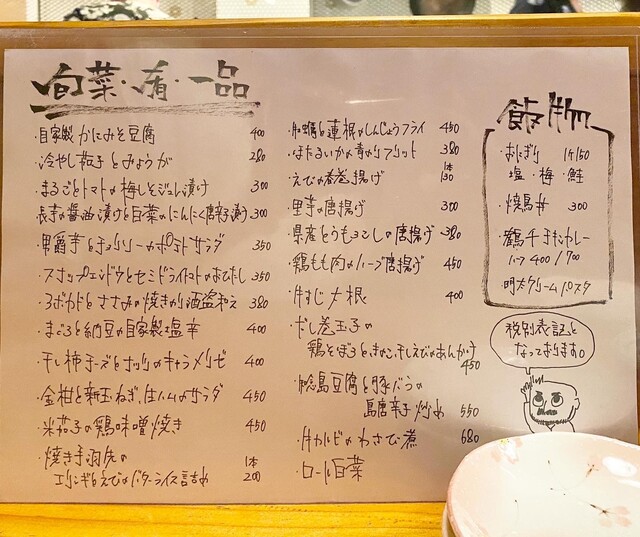 旬菜・肴・一品
・自家製 かにみそ豆腐 400
・冷やし茄子とみょうが 280
・まるごとトマトの梅しそジュレ漬け 300
・長芋の醤油漬けと白菜のにんにく唐辛子漬け 300
・里芋とチョリソーのポテトサラダ 350
・スナップエンドウとセミドライトマトのおひたし 350
・アボカドとささみの焼きのり酒盗和え 380
・まぐろと納豆の自家製塩辛 400
・干し柿チーズとナッツのキャラメリゼ 400
・金柑と新玉ねぎ、生ハムのサラダ 450
・米茄子の鶏味噌焼き 450
・焼き手羽先の 1本
エリンギとえびのバターライス詰め 200
蓮根のしんじょうフライ 450
・ほたるいかの青のりフリット 380
・えびの春巻揚げ 1本 130
・里芋の唐揚げ 300
・県産とうもろこしの唐揚げ 380
・鶏もも肉のハーブ唐揚げ 450
・牛すじ大根 400
・だし巻玉子の
鶏そぼろときのこ、干しえびのあんかけ 450
島豆腐と豚バラの
島唐辛子炒め 550
・牛カルビのわさび煮 680
・ロール白菜
飯物
・おにぎり 1ケ150
塩・梅・鮭
・焼鳥丼 300
・鶏キーマカレー
ハーフ400/700
・明太クリームパスタ
税別表記と
なっております。